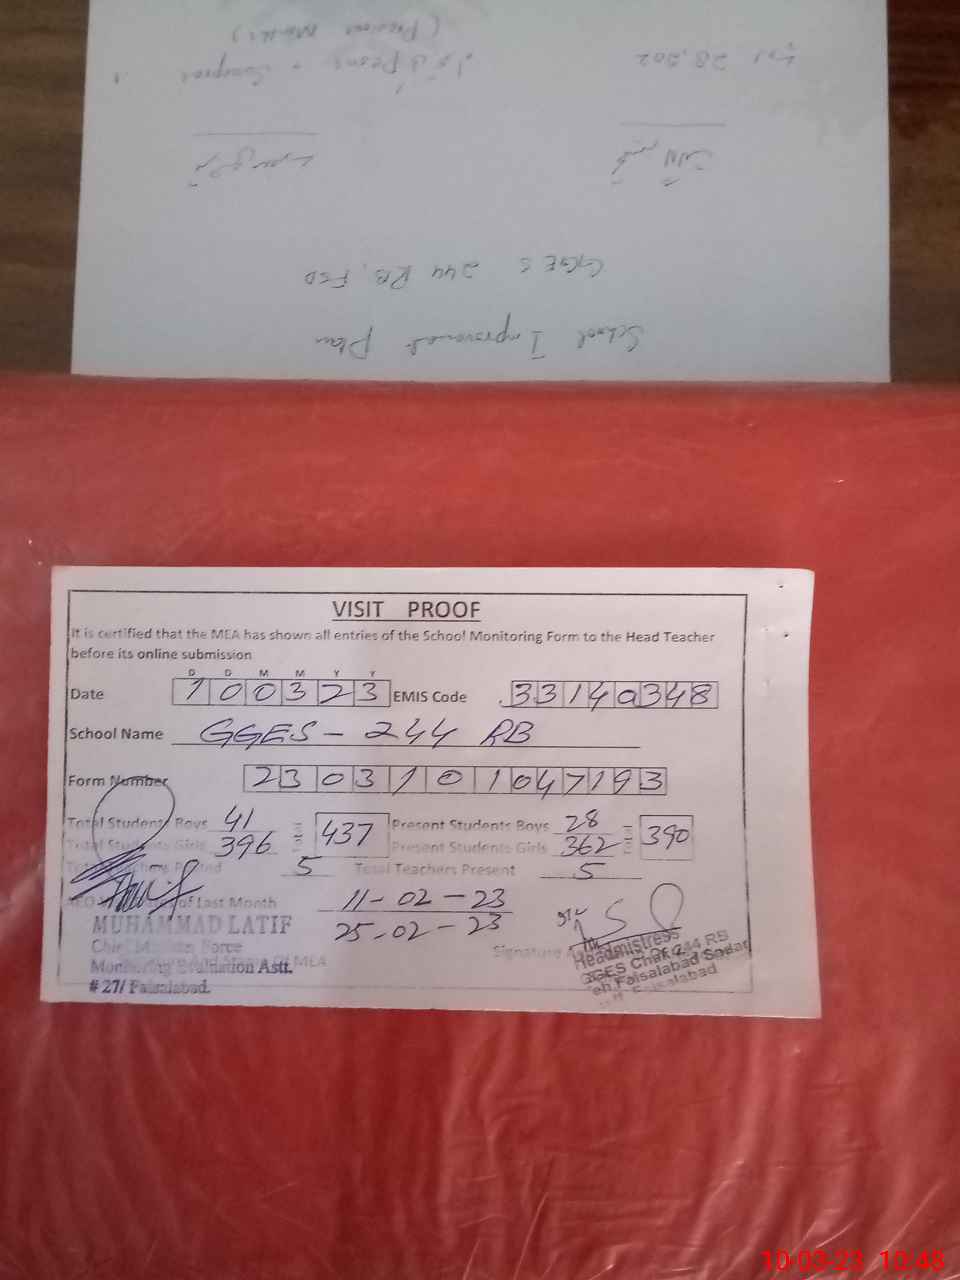 School Improvement Plan
GGES 244 RB, FSD
28,202
(Previous Months)
VISIT PROOF
It is certified that the MEA has shown all entries of the School Monitoring Form to the Head Teacher
before its online submission
D D M M Y Y
Date 100323 EMIS Code 33140348
School Name GGES - 244 RB
Form Number 2303101047193
Total Student Boys 41 Total 437 Present Students Boys 28 Total 390
Total Students Girls 396 Present Students Girls 362
5 Total Teachers Present 5
of Last Month 11-02-23
25-02-23
MUHAMMAD LATIF
Chief Minister Force
Monitoring Evaluation Astt.
# 27/ Faisalabad.
And Stamp Of MEA
Signature
Headmistress
GGES Chak 244 RB
Teh Faisalabad Sadar
Faisalabad
10-03-23 10:48